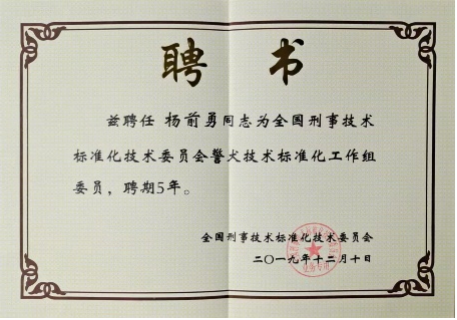 聘 书
兹聘任 杨前勇同志为全国刑事技术
标准化技术委员会警犬技术标准化工作组
委员，聘期5年。
全国刑事技术标准化技术委员会
二〇一九年十二月十日